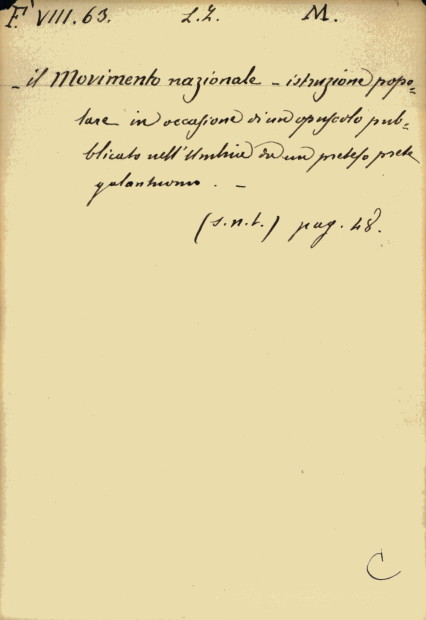 F. VIII. 63. L.Z. M.
- il Movimento nazionale - istruzione popo=
lare in occasione di un opuscolo pub=
blicato nell'Umbria da un preteso prete
galantuomo. -
(s.n.t.) pag. 48.
C